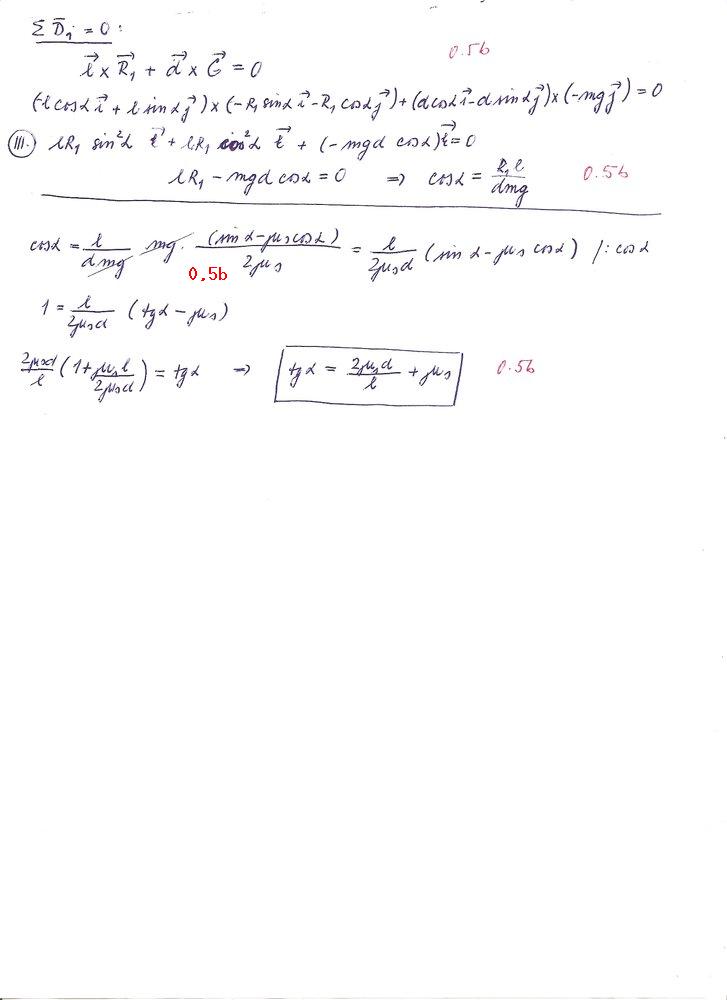 Σ D̄₁ = 0 :
0.5b
l⃗ × R⃗₁ + d⃗ × G⃗ = 0
(-l cosα i⃗ + l sinα j⃗) × (-R₁ sinα i⃗ - R₁ cosα j⃗) + (d cosα i⃗ - d sinα j⃗) × (-mg j⃗) = 0
III. l R₁ sin²α k⃗ + l R₁ cos²α k⃗ + (-mgd cosα) k⃗ = 0
l R₁ - mgd cosα = 0 ⇒ cosα = R₁ l / dmg 0.5b
cosα = l / dmg mg · (sinα - μₛ cosα) / 2μₛ = l / 2μₛd (sinα - μₛ cosα) /: cosα
0,5b
1 = l / 2μₛd (tgα - μₛ)
2μₛd / l (1 + μₛ l / 2μₛd) = tgα ⇒ tgα = 2μₛd / l + μₛ 0.5b